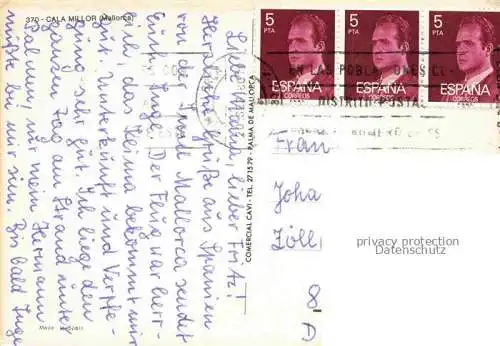 370 - CALA MILLOR (Mallorca)
Liebe lieber Fritz!
Herzliche Grüße aus Spanien
von der Insel Mallorca sendet
Euch Inge. Der Flug war herr-
lich, das Klima bekommt mir
gut, Unterkunft und Verpfle-
gung sehr gut. Ich liege den
ganzen Tag am Strand unter
Palmen! Nur mein Hermann
müßte bei mir sein. Bis bald Inge
COMERCIAL CAVI - TEL. 271579 - PALMA DE MALLORCA
5
PTA
ESPAÑA
CORREOS
5
PTA
ESPAÑA
CORREOS
5
PTA
ESPAÑA
CORREOS
EN LAS POBLACIONES
DISTRITO POSTAL
Frau
Joha
Zöll
8
D
privacy protection
Datenschutz